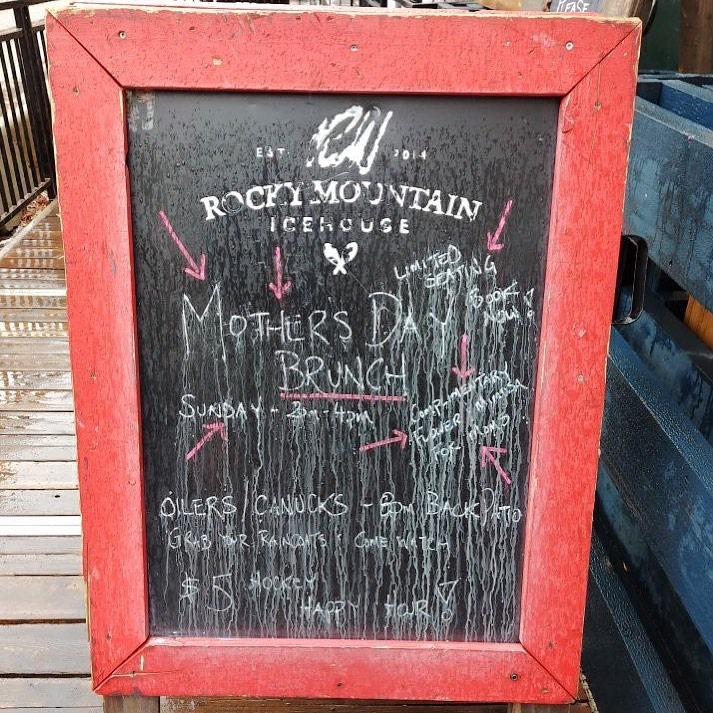 PLEASE
EST. 2014
ROCKY MOUNTAIN
ICEHOUSE
LIMITED
SEATING
BOOK
NOW!
MOTHERS DAY
BRUNCH
SUNDAY - 2PM-4PM
COMPLIMENTARY
FLOWER MIMOSA
FOR MOMS
OILERS CANUCKS - 8PM BACK PATIO
GRAB YOUR RAINCOATS & COME WATCH
$5 HOCKEY
HAPPY HOUR!